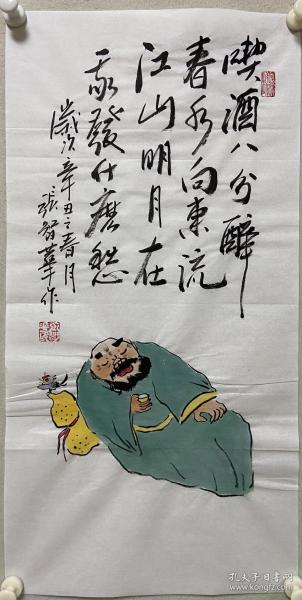 喫酒八分醉
春水向東流
江山明月在
我發什麽愁
歲次辛丑之春月
張智華作
孔夫子旧书网